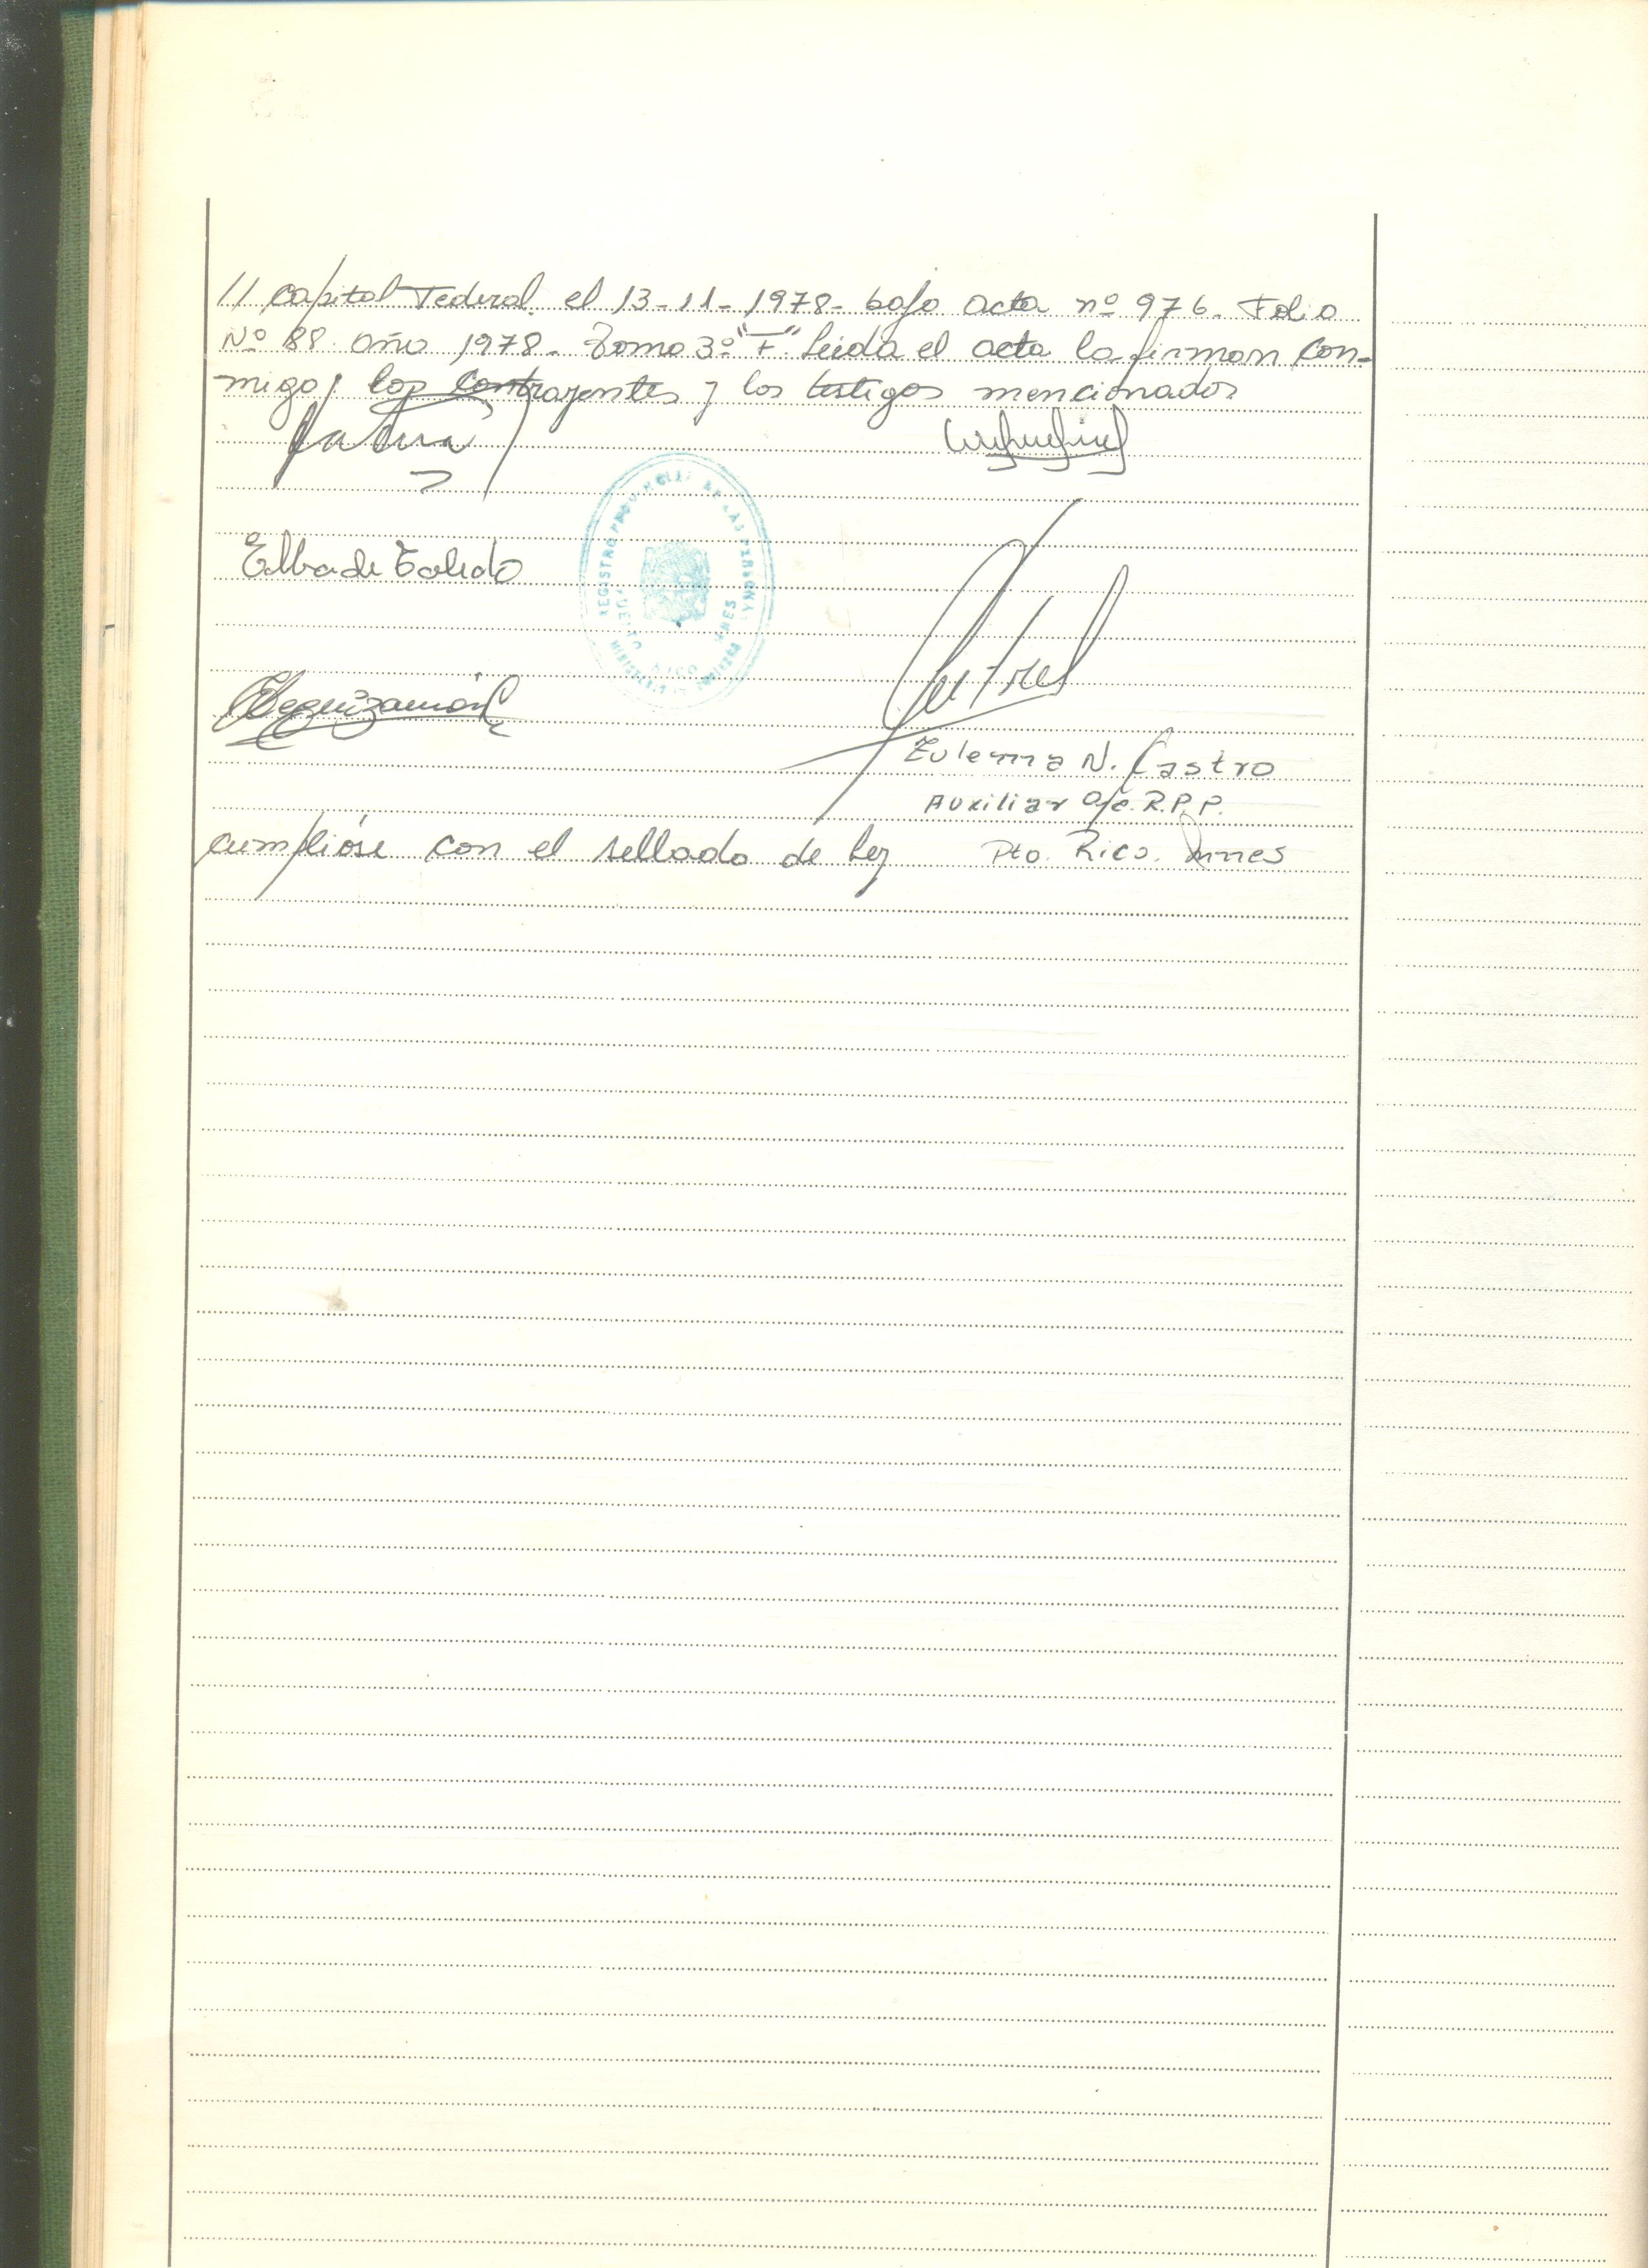 // Capital Federal el 13-11-1978- bajo acta nº 976. Folio
Nº 88 año 1978- Tomo 3º "F" Leida el acta la firman con-
migo, los contrayentes y los testigos mencionados
Elba de Toledo
REGISTRO PROVINCIAL DE LAS PERSONAS
Zulema N. Castro
Auxiliar a/c. R.P.P.
cumplióse con el sellado de ley Pto. Rico. Mnes